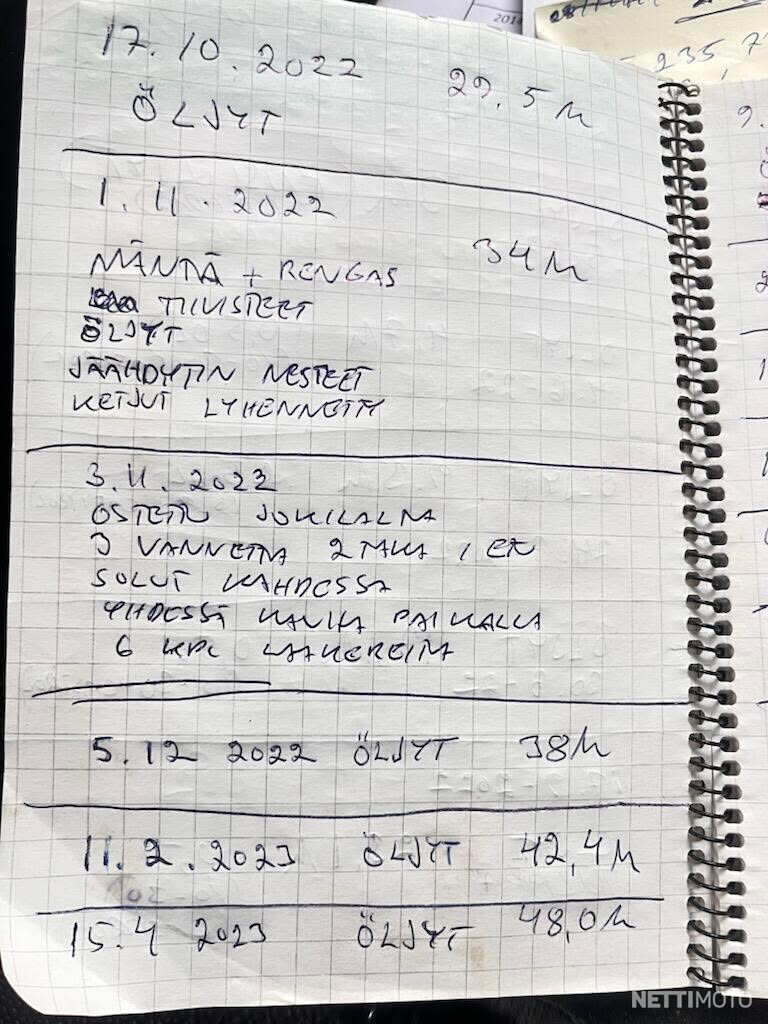 17.10.2022 29.5 M
ÖLJYT
1.11.2022
34 M
MÄNTÄ + RENGAS
TIIVISTEET
ÖLJYT
JÄÄHDYTIN NESTEET
KETJUT LYHENNETTY
3.11.2022
OSTETTU
3 VANNETTA 2 TAKA 1 ER
SOLUT KAHDESSA
YHDESSÄ PAIKALLA
6 KPL LAAKEREITA
5.12 2022 ÖLJYT 38 M
11.2.2023 ÖLJYT 42,4 M
15.4 2023 ÖLJYT 48,0 M
NETTIMOTO